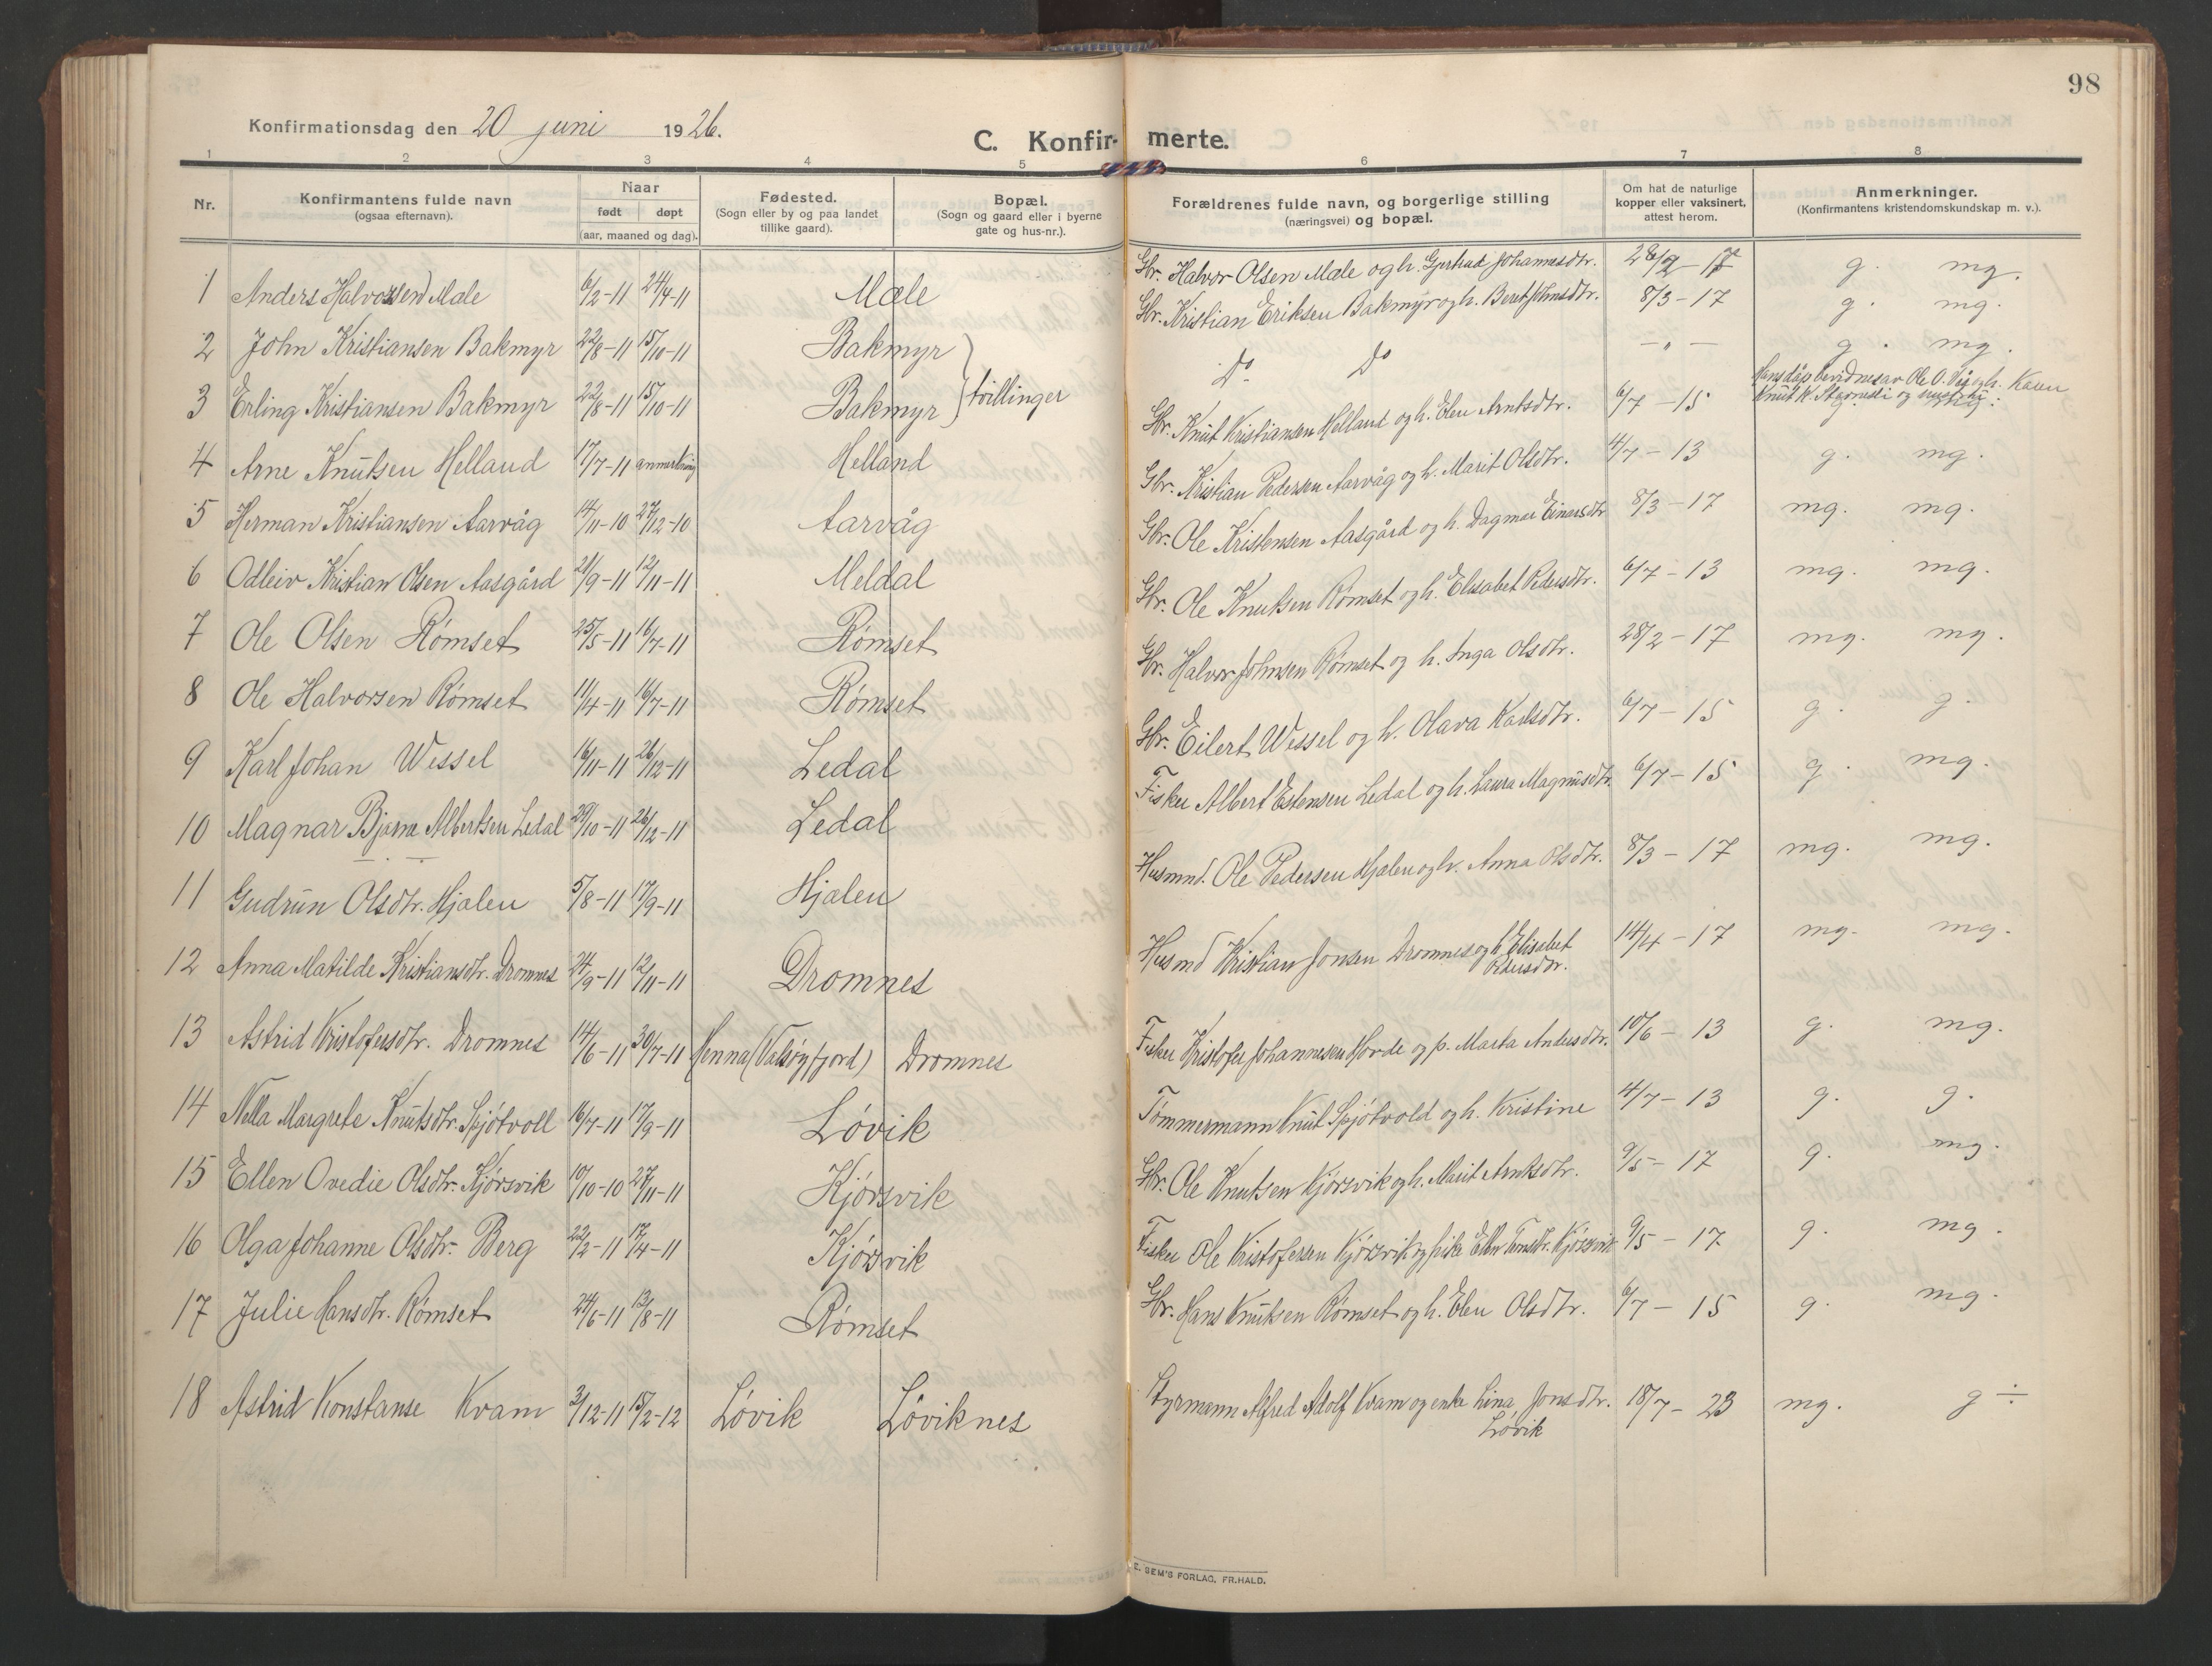 98
Konfirmationsdag den 20 juni 1926.
C. Konfir- merte.
1 2 3 4 5 6 7 8
Nr. Konfirmantens fulde navn (ogsaa efternavn). Naar født døpt (aar, maaned og dag). Fødested. (Sogn eller by og paa landet tillike gaard). Bopæl. (Sogn og gaard eller i byerne gate og hus-nr.). Forældrenes fulde navn, og borgerlige stilling (næringsvei) og bopæl. Om hat de naturlige kopper eller vaksinert, attest herom. Anmerkninger. (Konfirmantens kristendomskundskap m. v.).
1 Anders Halvorsen Mæle 6/2-11 24/4-11 Mæle Gbr. Halvor Olsen Mæle og h. Gjertrud Johannesdtr. 28/2-17 g. mg.
2 John Kristiansen Bakmyr 22/8-11 15/10-11 Bakmyr Gbr. Kristian Eriksen Bakmyr og h. Beret Johnsdtr. 8/3-17 g. mg.
3 Erling Kristiansen Bakmyr 22/8-11 15/10-11 Bakmyr } tvillinger Do Do -"- g. mg.
4 Arne Knutsen Helland 17/7-11 anmerkning Helland Gbr. Knut Kristiansen Helland og h. Elen Arntsdtr. 6/7-15 Hans dåp bevidnes av Ole O. Vig og h. Karen Knut K. og g. mg.
5 Herman Kristiansen Aarvåg 14/11-10 27/12-10 Aarvåg Gbr. Kristian Pedersen Aarvåg og h. Marit Olsdtr. 4/7-13 g. mg.
6 Odleiv Kristian Olsen Aasgård 21/9-11 12/11-11 Meldal Gbr. Ole Kristensen Aasgård og h. Dagmar Einarsdtr 8/3-17 mg. mg.
7 Ole Olsen Rømset 25/5-11 16/7-11 Rømset Gbr. Ole Knutsen Rømset og h. Elisabet Pedersdtr. 6/7-13 mg. mg.
8 Ole Halvorsen Rømset 11/4-11 16/7-11 Rømset Gbr. Halvor Johnsen Rømset og h. Inga Olsdtr. 28/2-17 mg. mg.
9 Karl Johan Wessel 16/11-11 26/12-11 Ledal Gbr. Eilert Wessel og h. Olava Karlsdtr. 6/7-15 g. g.
10 Magnar Bjarne Albertsen Ledal 29/10-11 26/12-11 Ledal Fisker Albert Estensen Ledal og h. Laura Magnusdtr. 6/7-15 g. mg.
11 Gudrun Olsdtr. Hjalen 5/8-11 17/9-11 Hjalen Husmnd. Ole Pedersen Hjalen og h. Anna Olsdtr. 8/3-17 mg. mg.
12 Anna Matilde Kristiansdtr. Dromnes 24/9-11 12/11-11 Dromnes Husmd Kristian Jonsen Dromnes og h. Elisabet Pedersdtr. 14/4-17 mg. mg.
13 Astrid Kristofersdtr. Dromnes 14/6-11 30/7-11 Henna (Valsøyfjord) Dromnes Fisker Kristofer Johannesen Horde og p. Marta Andersdtr. 10/6-13 g. mg.
14 Nella Margrete Knutsdtr. Spjøtvoll 16/7-11 17/9-11 Løvik Tømmermann Knut Spjøtvold og h. Kristine 4/7-13 g. g.
15 Ellen Ovedie Olsdtr. Kjørsvik 10/10-10 27/11-11 Kjørsvik Gbr. Ole Knutsen Kjørsvik og h. Marit Arntsdtr. 9/5-17 g. mg.
16 Olga Johanne Olsdtr. Berg 22/2-11 17/4-11 Kjørsvik Fisker Ole Kristofersen Kjørsvik og pike Ellen Kjørsvik 9/5-17 g. mg.
17 Julie Hansdtr. Rømset 24/6-11 13/8-11 Rømset Gbr. Hans Knutsen Rømset og h. Elen Olsdtr. 6/7-15 g. mg.
18 Astrid Konstanse Kvam 3/12-11 15/2-12 Løvik Løviknes Styrmann Alfred Adolf Kvam og enke Lina Jonsdtr. Løvik 18/7-23 mg. g ÷
E. SEM'S FORLAG, FR.HALD.